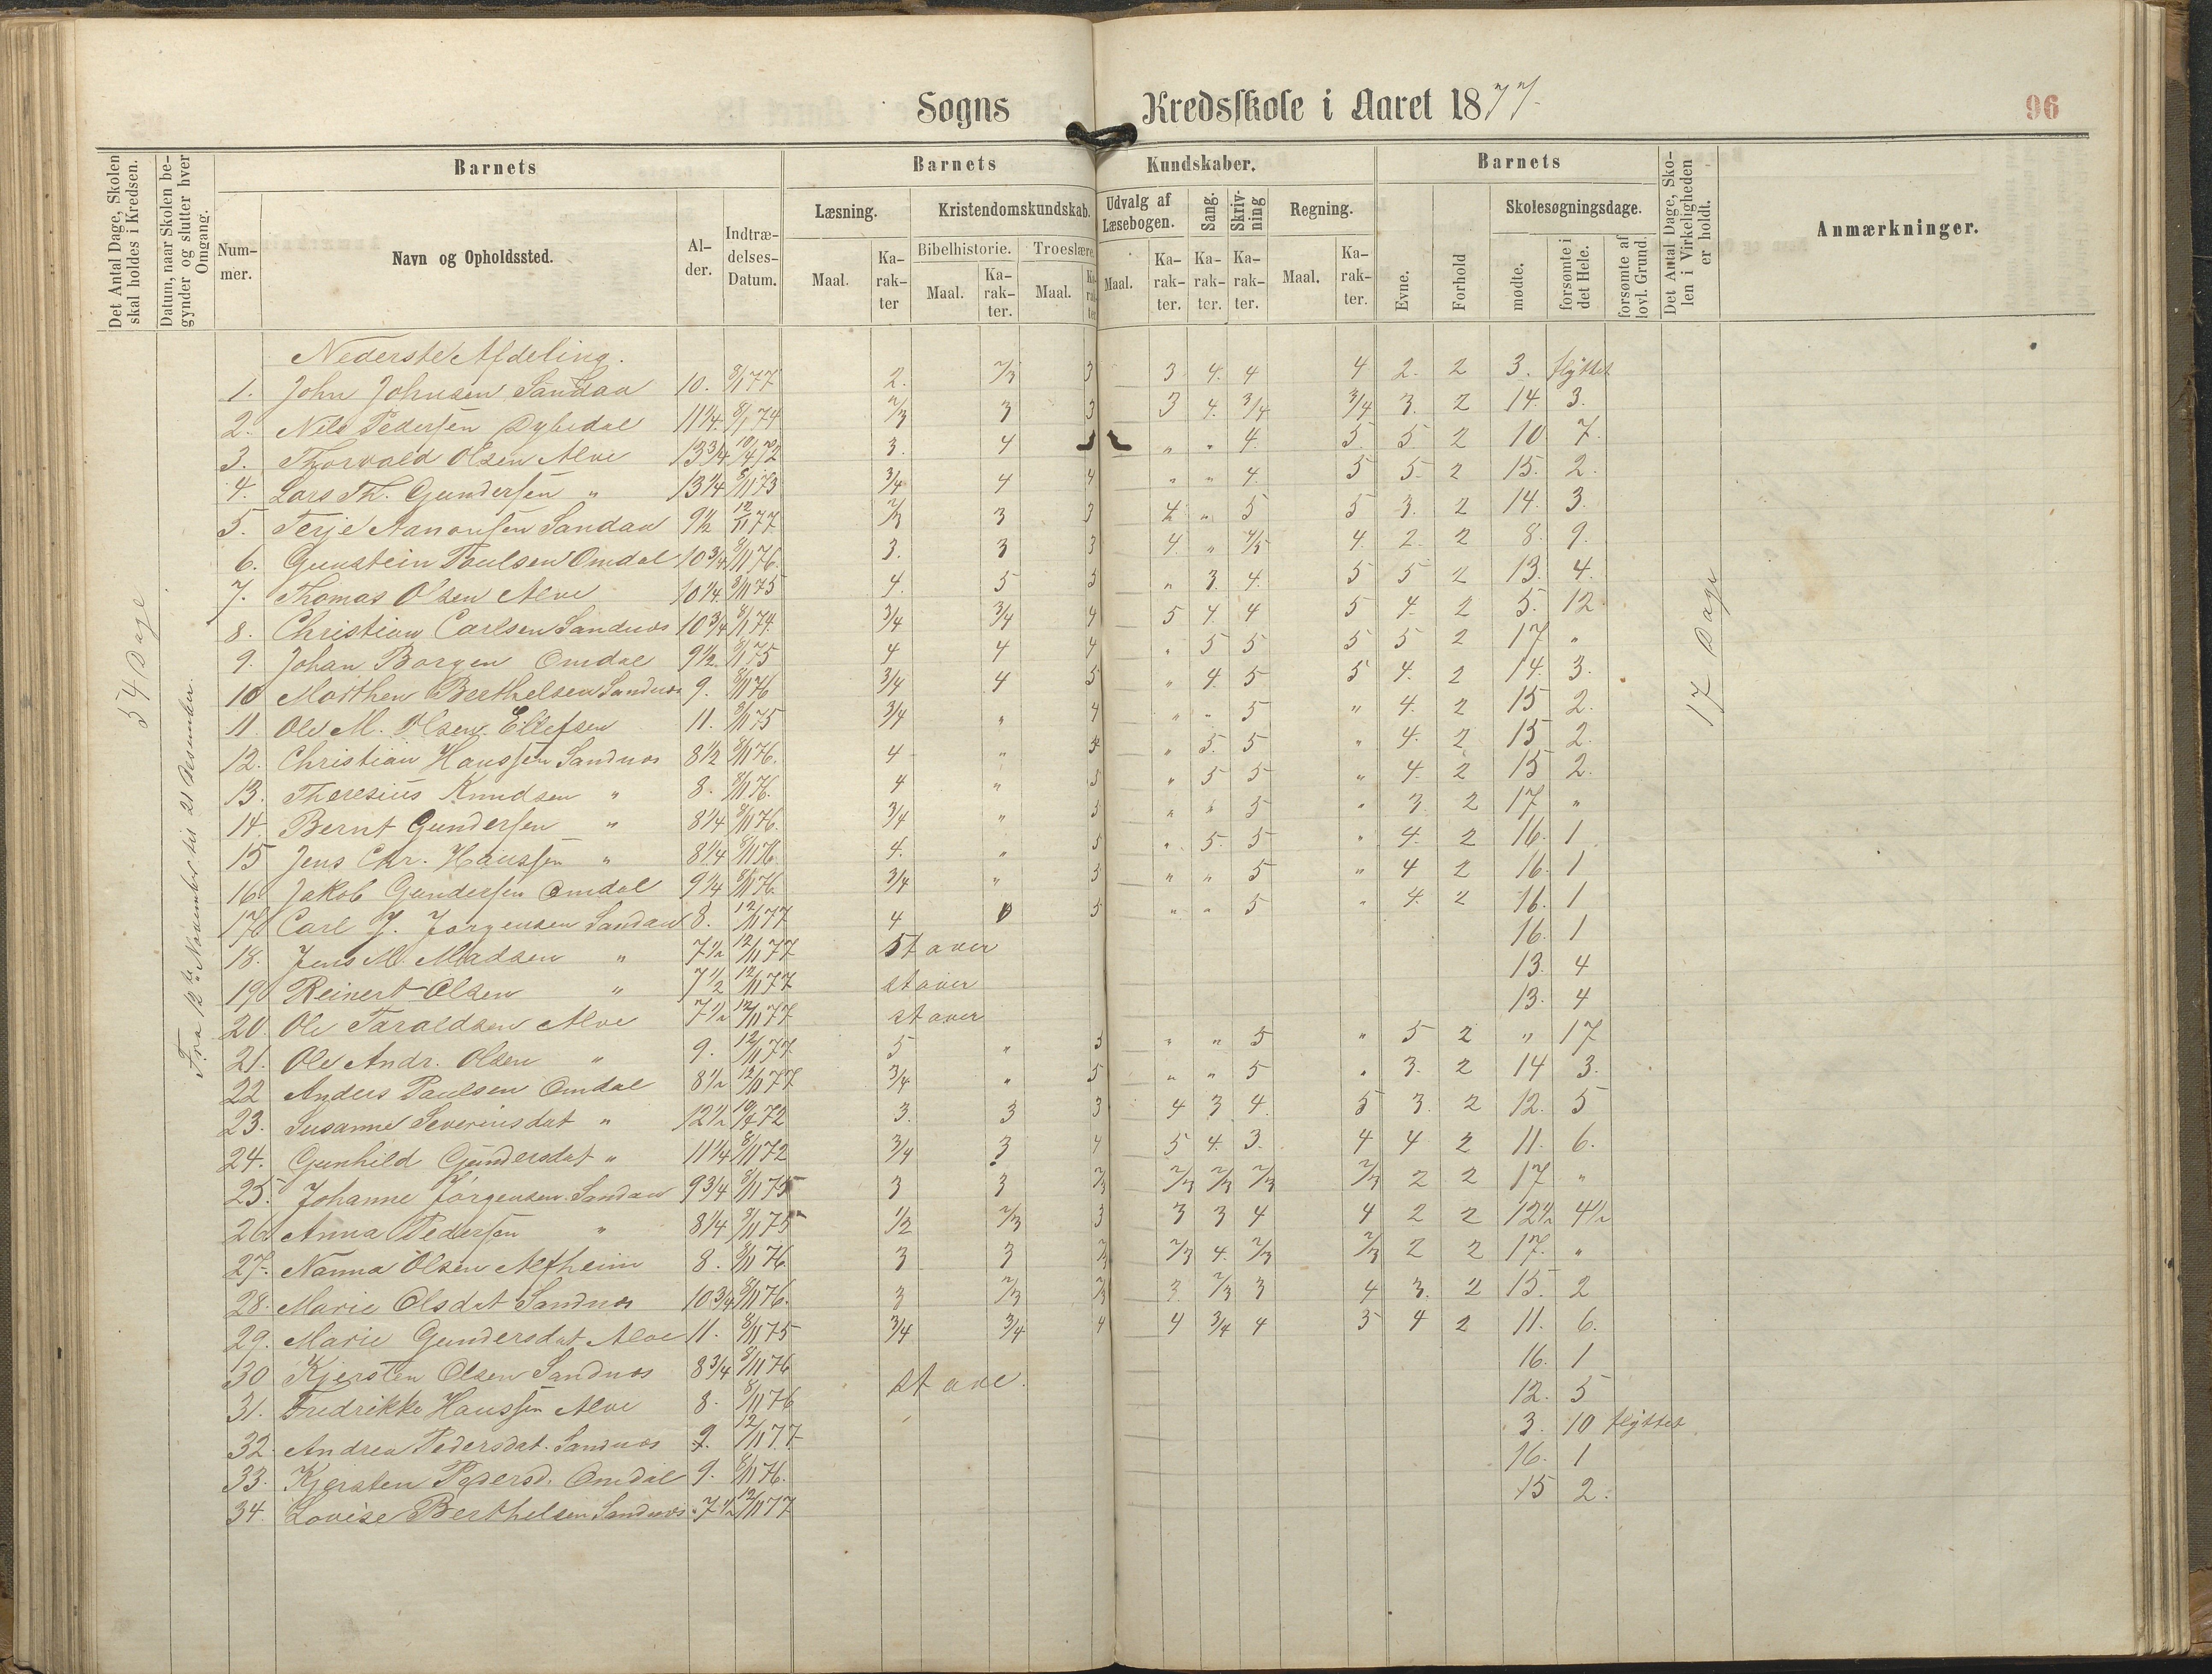 Sogns Kredsskole i Aaret 1877.
96
Det Antal Dage, Skolen skal holdes i Kredsen.
Datum, naar Skolen begynder og slutter hver Omgang.
Barnets
Barnets
Kundskaber.
Barnets
Det Antal Dage, Skolen i Virkeligheden er holdt.
Anmærkninger.
Nummer.
Navn og Opholdssted.
Alder.
Indtrædelses-Datum.
Læsning.
Kristendomskundskab.
Udvalg af Læsebogen.
Sang.
Skrivning
Regning.
Evne.
Forhold
Skolesøgningsdage.
Maal.
Karakter
Bibelhistorie.
Troeslære.
Maal.
Karakter.
Maal.
Karakter
Maal.
Karakter.
Karakter.
Karakter.
Maal.
Karakter.
mødte.
forsømte i det Hele.
forsømte af lovl. Grund.
54 Dage
Fra 12te November til 21 Desember.
17 Dage
Nederste Afdeling.
1. John Johnsen Sandaa 10. 8/1 77 2. 2/3 3 3 4. 4 4 2. 2 3. flyttet
2. Nils Pedersen Dybedal 11 1/4 8/1 74 2/3 3 3 3 4. 3/4 3/4 3. 2 14. 3.
3. Thorvald Olsen Alve 13 3/4 19/4 72 3. 4 5 " " 4. 5. 5 2 10 7.
4. Lars Th. Gundersen " 13 1/4 8/11 73 3/4 4 4 " " 4. 5 5 2 15. 2.
5. Terje Aanonsen Sandaa 9 1/2 12/11 77 2/3 3 3 4 " 5 5 3. 2 14. 3.
6. Gunstein Paulsen Omdal 10 3/4 8/11 76. 3. 3 3 4. " 4/5 4. 2. 2 8. 9.
7. Thomas Olsen Alve 10 1/4. 8/11 75 4. 5 5 " 3 4. 5 5 2 13. 4.
8. Christian Carlsen Sandnæs 10 3/4 8/1 74. 3/4 3/4 4 5 4. 4 5 4. 2 5. 12
9. Johan Borgen Omdal 9 1/2 8/11 75 4 4 4 " 5 5 5 5 2 17 "
10 Morthen Berthelsen Sandnæs 9. 8/11 76 3/4 4 5 " 4. 5 5 4. 2 14. 3.
11. Ole M. Olsen Ellefsen 11. 8/11 75 3/4 " 4 " " 5 " 4. 2 15 2.
12. Christian Hanssen Sandnæs 8 1/2 8/11 76. 4 " 5 " 5. 5 " 4. 2 15 2.
13. Theresius Knudsen " 8. 8/11 76. 4 " 5 " 5 5 " 4. 2 15 2.
14. Bernt Gundersen " 8 1/4 8/11 76. 3/4 " 5 " " 5 " 3. 2 17 "
15 Jens Chr. Hanssen " 8 1/4 8/11 76 4. " 5 " 5. 5 " 4. 2 16. 1
16. Jakob Gundersen Omdal 9 1/4 8/11 76. 3/4 " 5 " " 5 " 4 2 16. 1
17 Carl J. Jørgensen Sandaa 8. 12/11 77 4 5 " " 5 " 4. 2 16. 1
18. Jens M. Madsen " 7 1/2 12/11 77 Staver 16. 1
19 Reinert Olsen " 7 1/2 12/11 77 staver 13. 4
20. Ole Taraldsen Alve 7 1/2 12/11 77 staver 13. 4
21. Ole Andr. Olsen " 9. 12/11 77 5 " 5 " " 5 " 5 2 " 17
22 Anders Paulsen Omdal 8 1/2 12/11 77 3/4 " 5 " " 5 " 3. 2 14 3.
23. Susanne Severinsdat " 12 1/2 19/4 72 3. 3 3 4 3 4. 5 3. 2 12. 5
24. Gunhild Gundersdat " 11 1/4 8/11 72 3/4 3 4 5 4. 3. 4 4 2 11. 6.
25. Johanne Jørgensen Sandaa 9 3/4 8/11 75 3 3 2/3 2/3 2/3 2/3 2/3 2 2 17 "
26. Anna Pedersen " 8 1/4 8/11 75 1/2 2/3 3 3 3 4 4 2 2 12 1/2 4 1/2
27. Nanna Olsen Alfheim 8. 8/11 76 3 3 2/3 2/3 4. 2/3 2/3 2 2 17. "
28. Marie Olsdat Sandnæs 10 3/4 8/11 76. 3 2/3 2/3 3 2/3 3 4 3. 2 15. 2
29. Marie Gundersdat Alve 11. 8/11 75 3/4 3/4 4 4 3/4 4 5 4 2 11. 6.
30 Kjersten Olsen Sandnæs 8 3/4 8/11 76 16. 1
31. Fredrikke Hanssen Alve 8. 8/11 76 stave. 12. 5
32. Andrea Pedersdat. Sandnæs 9. 12/11 77 3. 10 flyttet
33. Kjersten Pedersd. Omdal 9. 8/11 76. 16. 1
34. Lovise Berthelsen Sandnæs 7 1/2 12/11 77 15 2.